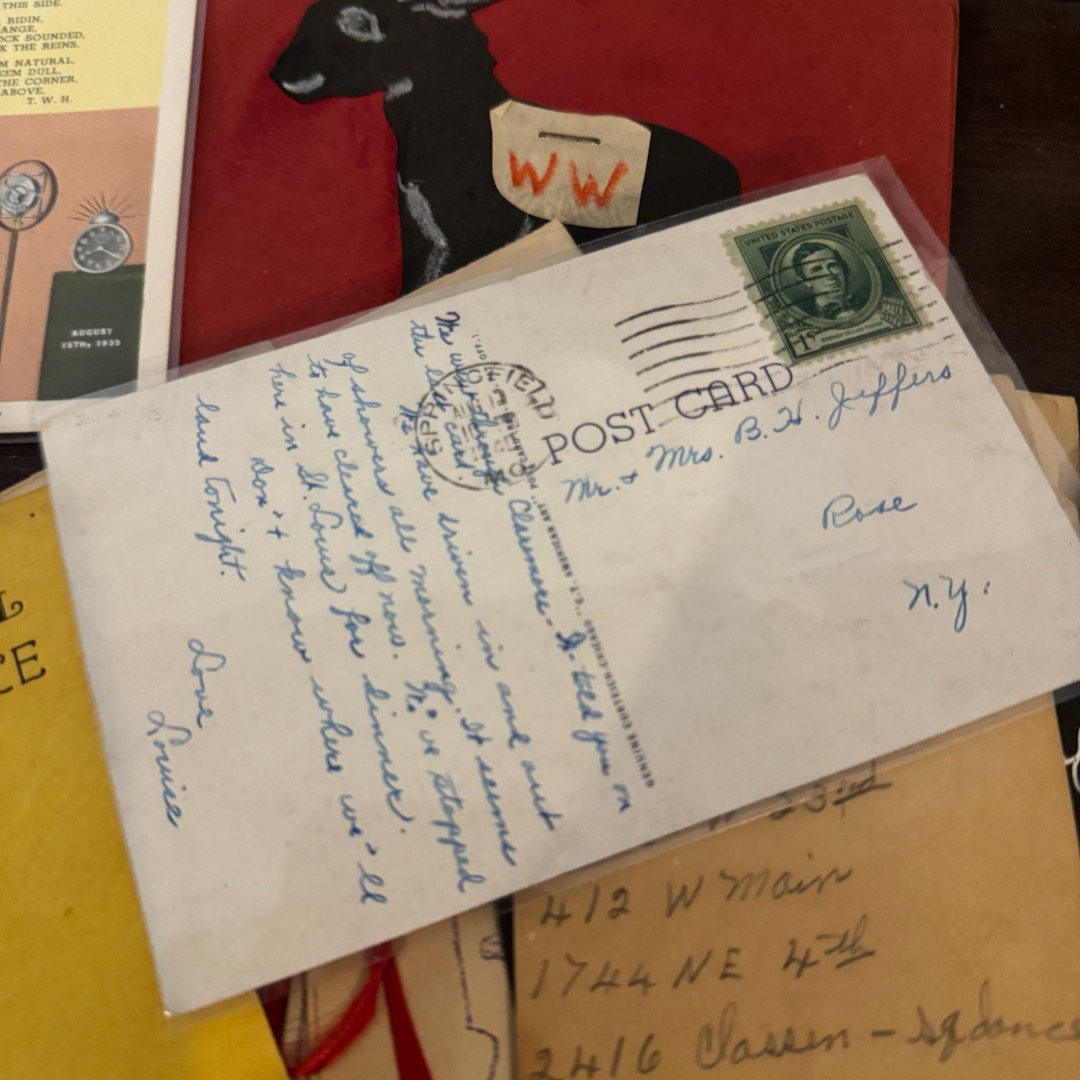 THIS SIDE.
RIDIN,
ANGE,
OCK SOUNDED,
K THE REINS.
M NATURAL,
EEM DULL,
THE CORNER,
ABOVE.
T. W. H.
AUGUST
15TH, 1935
WW
UNITED STATES POSTAGE
1¢
POST CARD
Mr. & Mrs. B. H. Jeffers
Rose
N.Y.
We went through Claremore - It tell you on
the last card.
We have driven in and out
of showers all morning. It seems
to have cleared off now. We've stopped
here in St. Louis for dinner.
Don't know where we'll
land tonight.
Love
Louise
GENUINE CURTEICH-CHICAGO "C.T. AMERICAN ART" POST CARD
L
CE
23rd
412 W Main
1744 NE 4th
2416 Classen - sq dance